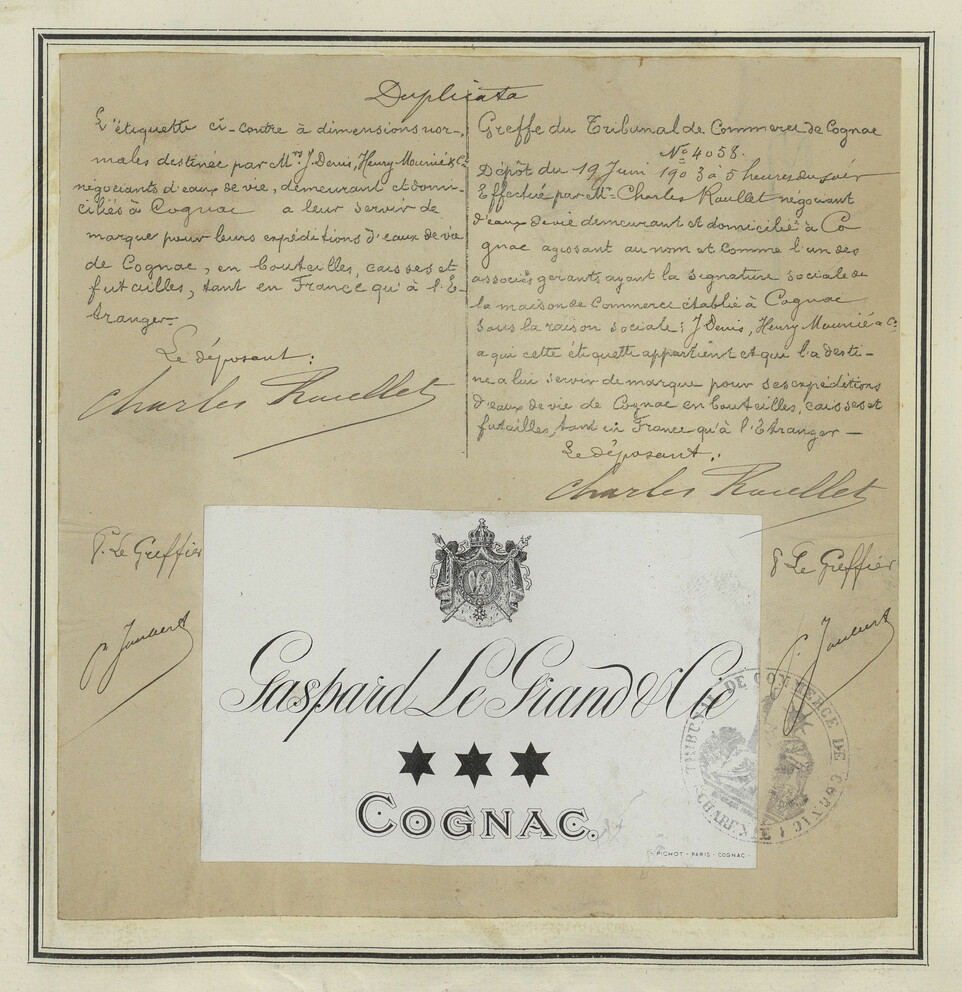 Duplicata
L'étiquette ci-contre à dimensions nor-
males destinée par Mrs J. Denis, Henry Mounié & Cie
négociants d'eaux de vie, demeurant et domi-
ciliés à Cognac a leur servir de
marque pour leurs expéditions d'eaux de vie
de Cognac, en bouteilles, caisses et
futailles, tant en France qu'à l'E-
tranger-
Le déposant:
Charles Roullet
Greffe du Tribunal de Commerce de Cognac
No 4058.
Dépôt du 19 Juin 1903 à 5 heures du soir
Effectué par Mr Charles Roullet négociant
d'eaux de vie demeurant et domicilié à Co
gnac agissant au nom et comme l'un des
associés gérants ayant la signature sociale de
la maison de Commerce établie à Cognac
sous la raison sociale: J. Denis, Henry Mounié & Cie
a qui cette étiquette appartient et qui l'a desti-
ne a lui servir de marque pour ses expéditions
d'eaux de vie de Cognac en bouteilles, caisses et
futailles, tant en France qu'à l'Etranger—
Le déposant:
Charles Roullet
P. Le Greffier
P. Le Greffier
Gaspard Le Grand & Cie
COGNAC.
PICHOT - PARIS - COGNAC -
TRIBUNAL DE COMMERCE DE COGNAC